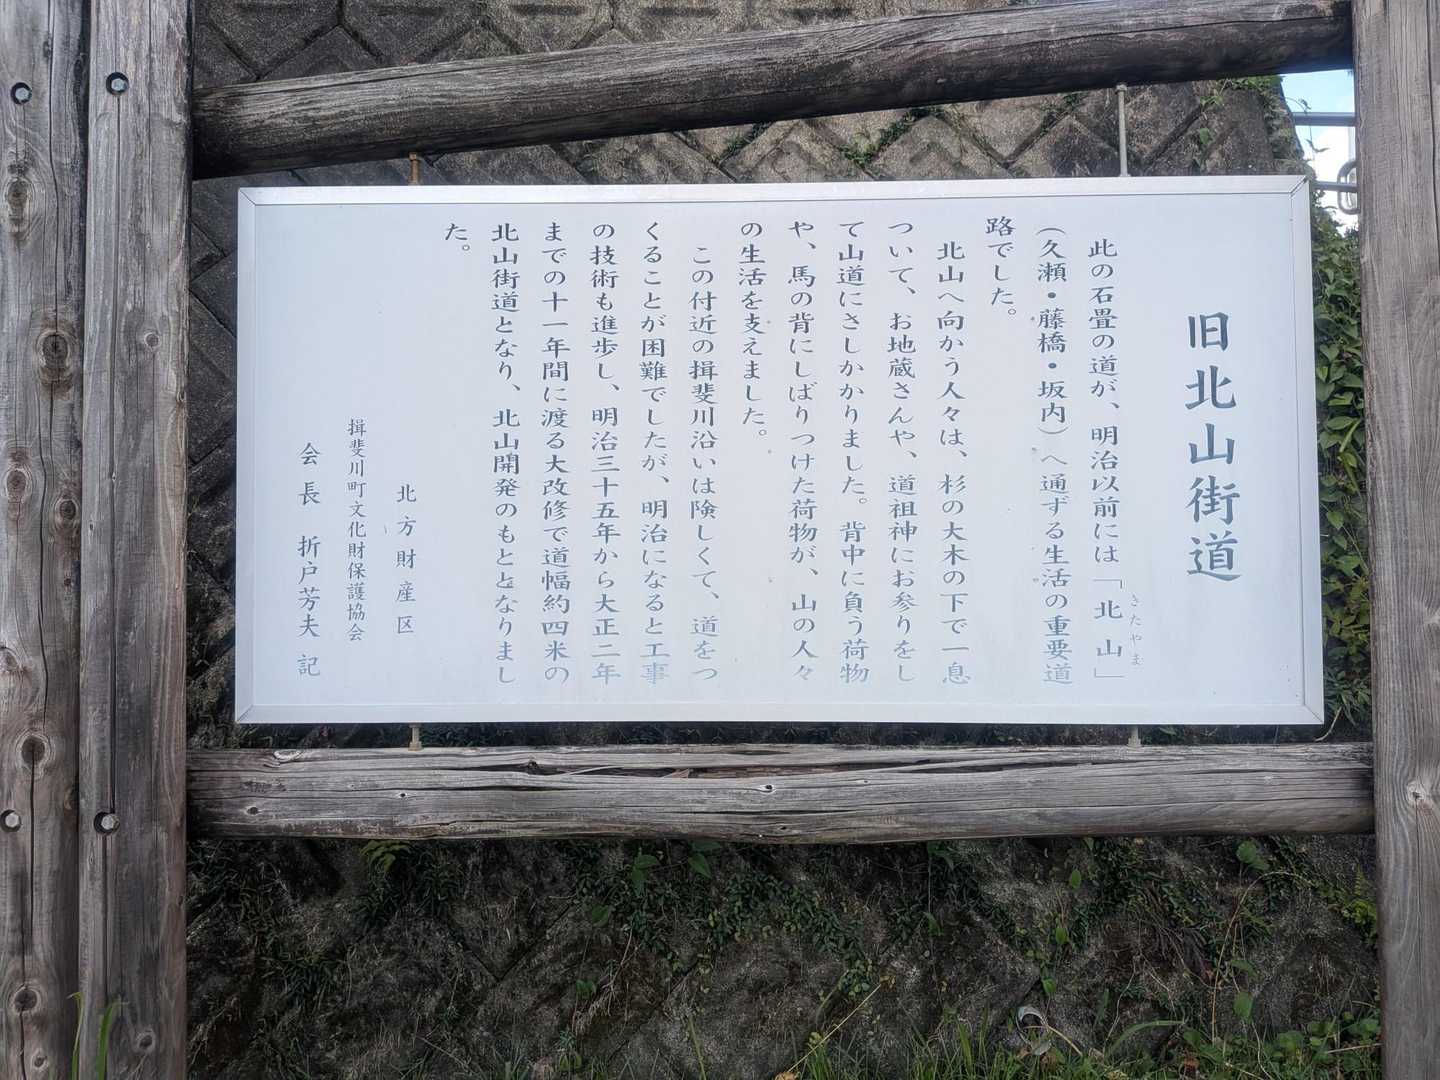 旧北山街道
此の石畳の道が、明治以前には「北山」
きたやま
(久瀬・藤橋・坂内)へ通ずる生活の重要道
路でした。
北山へ向かう人々は、杉の大木の下で一息
ついて、お地蔵さんや、道祖神にお参りをし
て山道にさしかかりました。背中に負う荷物
や、馬の背にしばりつけた荷物が、山の人々
の生活を支えました。
この付近の揖斐川沿いは険しくて、道をつ
くることが困難でしたが、明治になると工事
の技術も進歩し、明治三十五年から大正二年
までの十一年間に渡る大改修で道幅約四米の
北山街道となり、北山開発のもととなりまし
た。
北方財産区
揖斐川町文化財保護協会
会長 折戸芳夫 記